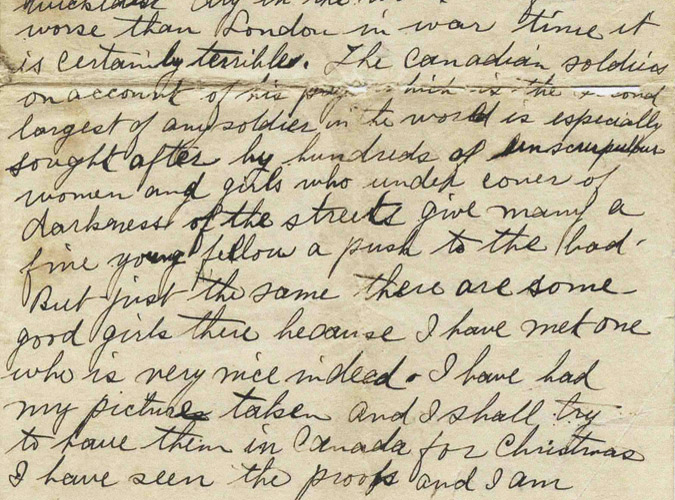 city in the
worse than London in war time it
is certainly terrible. The Canadian soldier
on account of his which is the second
largest of any soldier in the world is especially
sought after by hundreds of unscrupulous
women and girls who under cover of
darkness of the streets give many a
fine young fellow a push to the bad.
But just the same there are some
good girls there because I have met one
who is very nice indead. I have had
my pictures taken and I shall try
to have them in Canada for Christmas
I have seen the proofs and I am